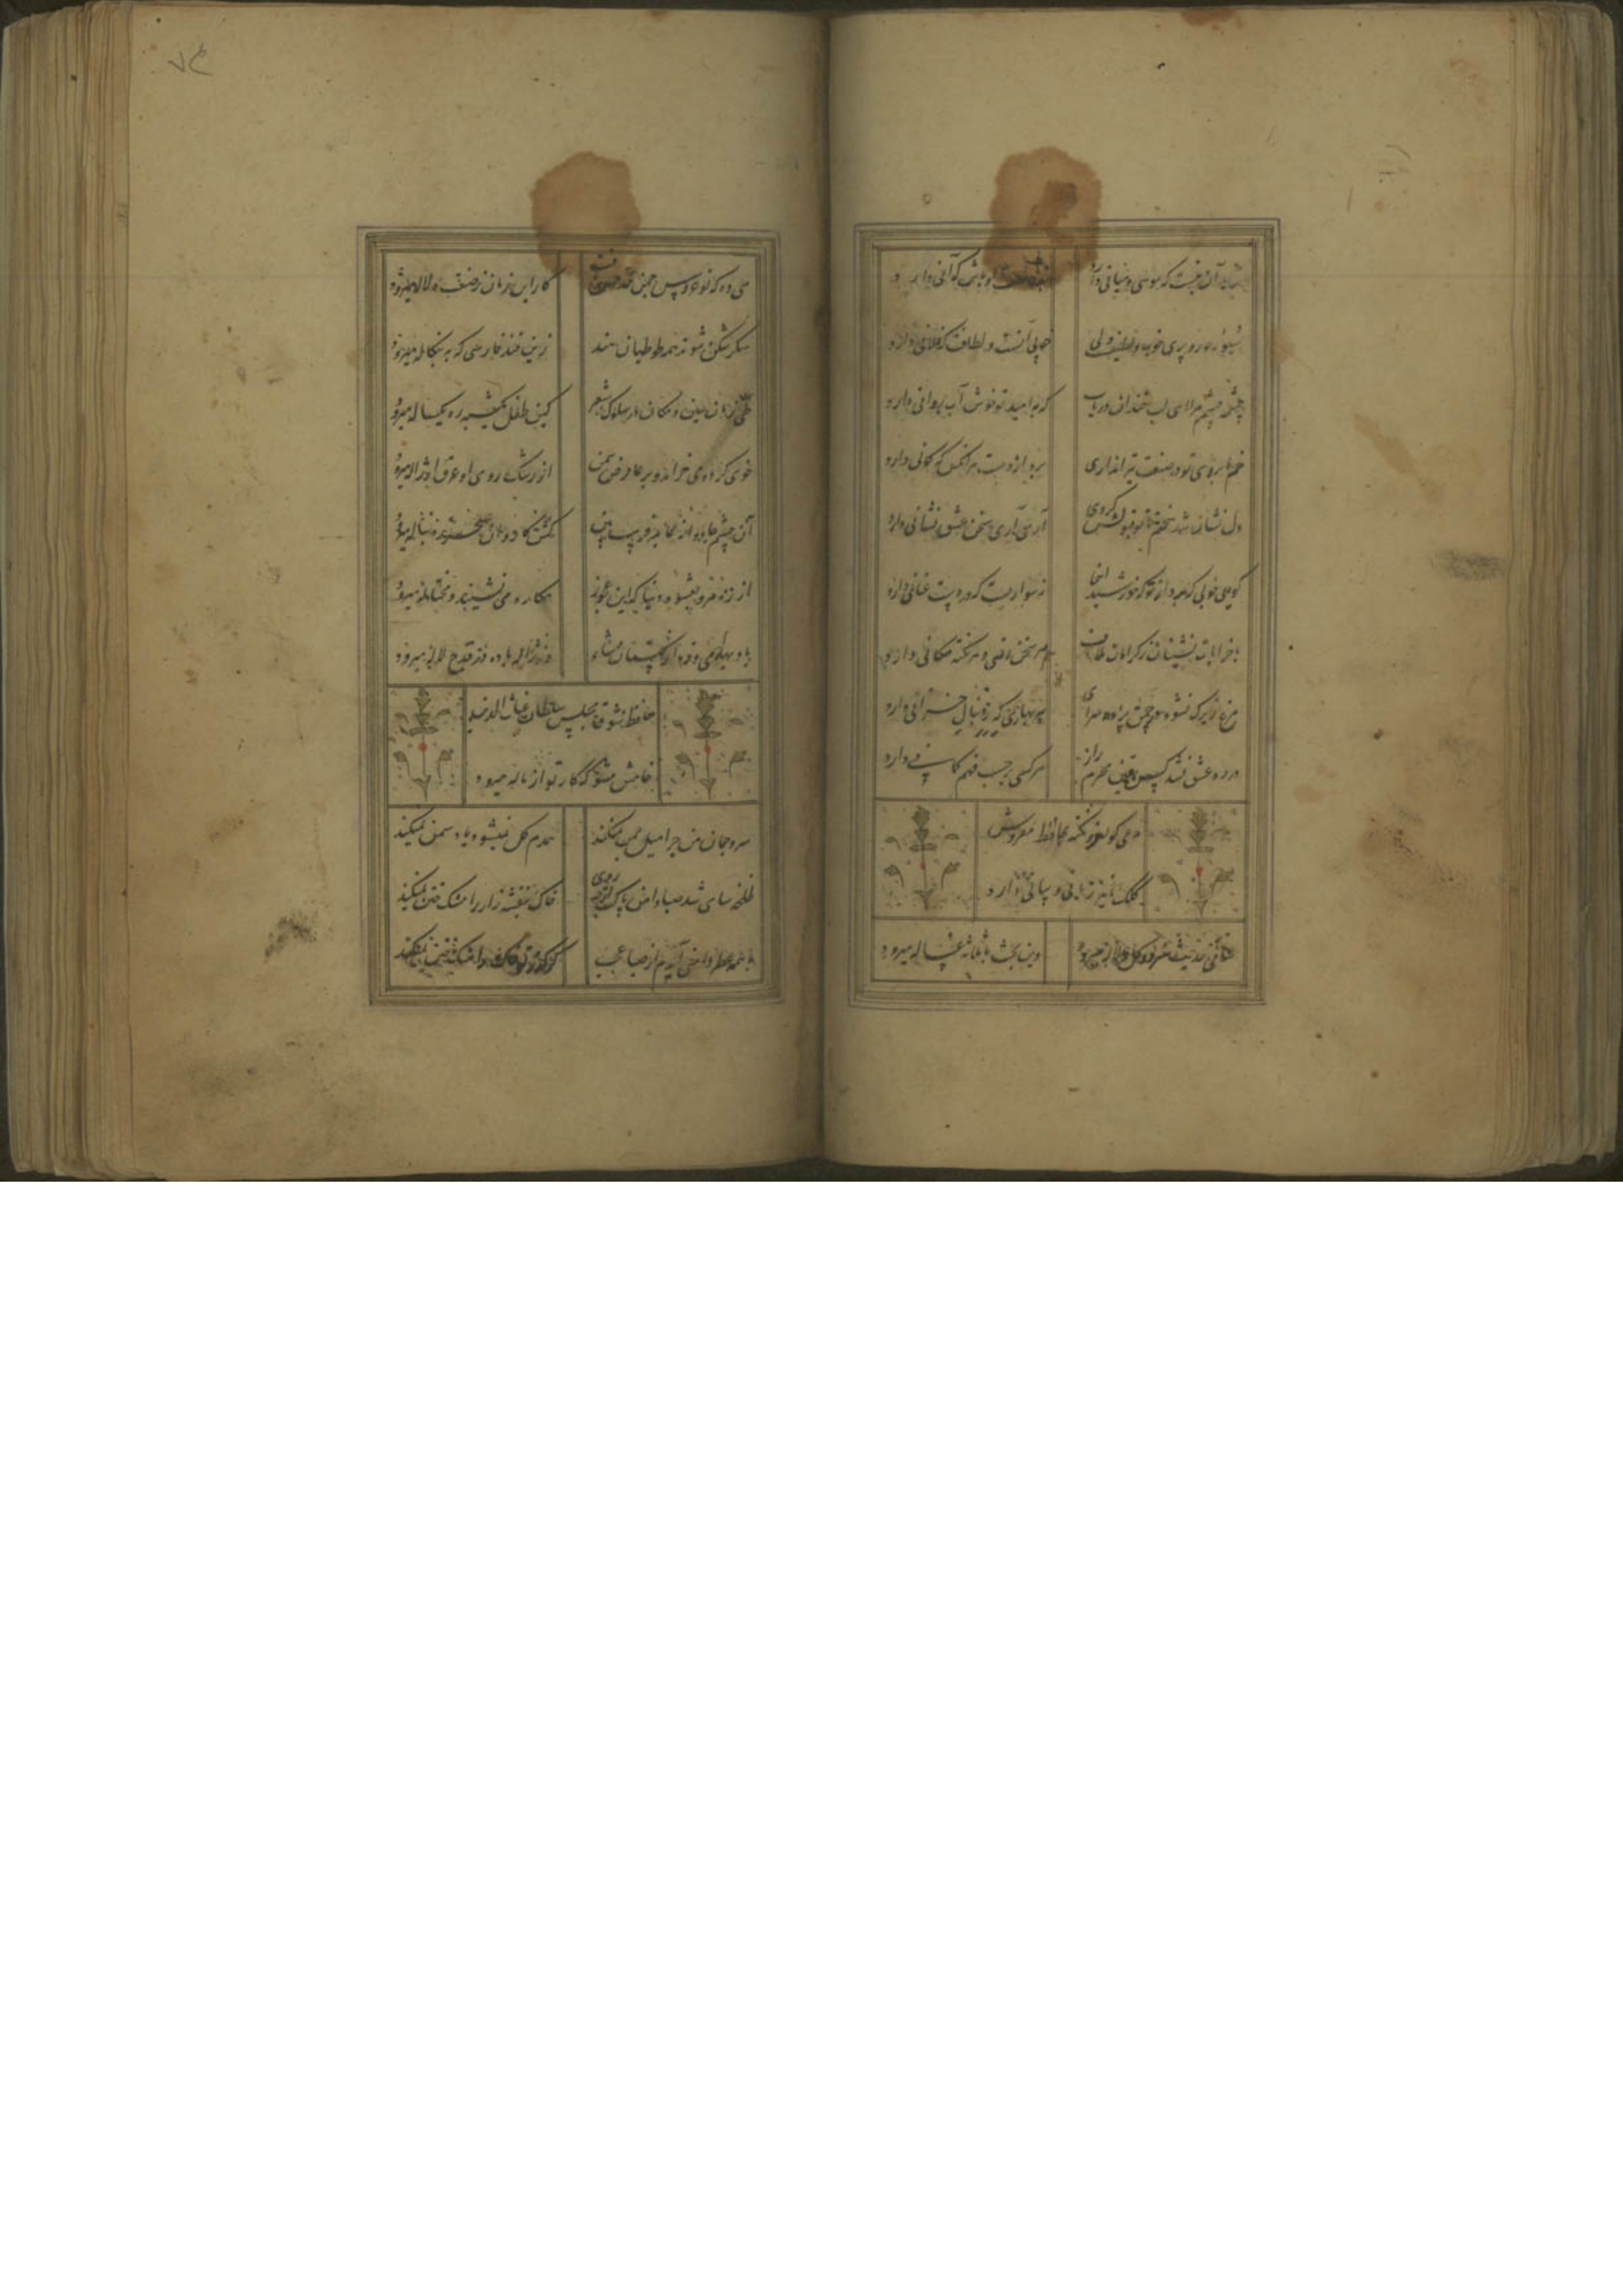 شاهد آن نیست که موئی و میانی دارد بنده طلعت او باش که آنی دارد
شیوه حور و پری خوب و لطیفست ولی خوبی آنست و لطافت که فلانی دارد
چشمه چشم مرا ای لب خندان دریاب که به امید تو خوش آب روانی دارد
خم ابروی تو در صنعت تیراندازی برد از دست هر آنکس که کمانی دارد
دل نشان شد سخنم تا تو قبولش کردی آری آری سخن عشق نشانی دارد
گوی خوبی که برد از تو که خورشید اینجا نه سواریست که در دست عنانی دارد
با خرابات نشینان ز کرامات ملاف هر سخن وقتی و هر نکته مکانی دارد
مرغ زیرک نشود در چمنش پرده سرای هر بهاری که ز دنبال خزانی دارد
در ره عشق نشد کس بیقین محرم راز هر کسی بر حسب فهم گمانی دارد
مدعی گو لغز و نکته بحافظ مفروش
کلک ما نیز زبانی و بیانی دارد
ساقی حدیث سرو و گل و لاله میرود وین بحث با ثلاثه غساله میرود
۷۴
می ده که نوعروس چمن حد حسن یافت کار این زمان ز صنعت دلاله میرود
شکر شکن شوند همه طوطیان هند زین قند فارسی که به بنگاله میرود
طی زمان ببین و مکان در سلوک شعر کین طفل یکشبه ره یکساله میرود
خوی کرده می خرامد و بر عارض سمن از رشک روی او عرق از ژاله میرود
آن چشم جادوانه عابد فریب بین کش کاروان سحر بدنباله میرود
از ره مرو بعشوه دنیا که این عجوز مکاره می نشیند و محتاله میرود
باد بهار می وزد از گلستان شاه وز ژاله باده در قدح لاله میرود
حافظ ز شوق مجلس سلطان غیاث الدین
خامش مشو که کار تو از ناله میرود
سرو چمان من چرا میل چمن نمیکند همدم گل نمیشود یاد سمن نمیکند
لخلخه سای شد صبا دامن پاکت از چه روی خاک بنفشه زار را مشک ختن نمیکند
با همه عطر دامنت آیدم از صبا عجب کز گذر تو خاک را مشک ختن نمیکند